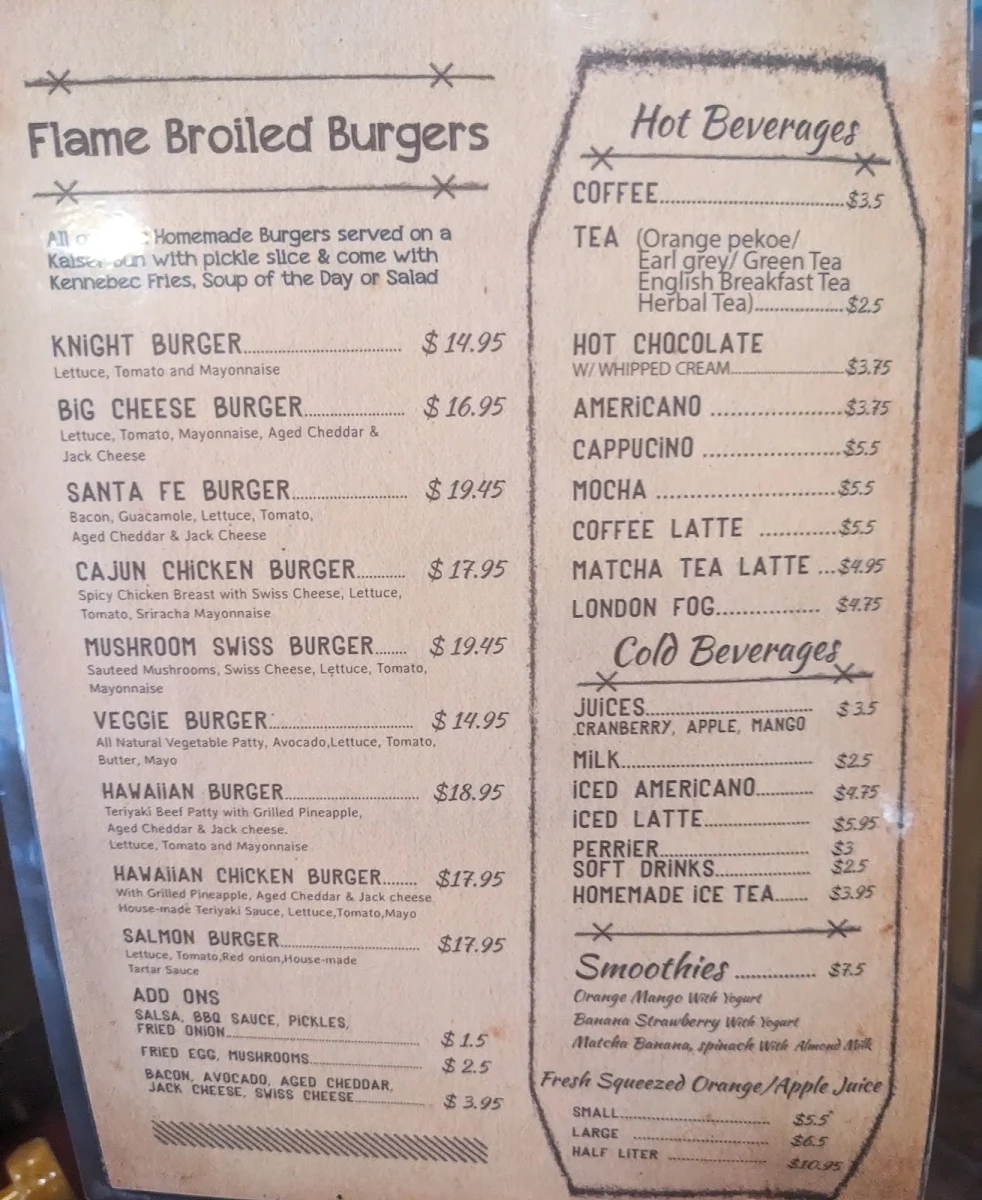 Flame Broiled Burgers
All Homemade Burgers served on a
Kaiser Bun with pickle slice & come with
Kennebec Fries, Soup of the Day or Salad
KNiGHT BURGER.......... $14.95
Lettuce, Tomato and Mayonnaise
BiG CHEESE BURGER.......... $16.95
Lettuce, Tomato, Mayonnaise, Aged Cheddar &
Jack Cheese
SANTA FE BURGER.......... $19.45
Bacon, Guacamole, Lettuce, Tomato,
Aged Cheddar & Jack Cheese
CAJUN CHiCKEN BURGER.......... $17.95
Spicy Chicken Breast with Swiss Cheese, Lettuce,
Tomato, Sriracha Mayonnaise
MUSHROOM SWiSS BURGER....... $19.45
Sauteed Mushrooms, Swiss Cheese, Lettuce, Tomato,
Mayonnaise
VEGGiE BURGER.......... $14.95
All Natural Vegetable Patty, Avocado,Lettuce, Tomato,
Butter, Mayo
HAWAiiAN BURGER.......... $18.95
Teriyaki Beef Patty with Grilled Pineapple,
Aged Cheddar & Jack cheese.
Lettuce, Tomato and Mayonnaise
HAWAiiAN CHiCKEN BURGER........ $17.95
With Grilled Pineapple, Aged Cheddar & Jack cheese
House-made Teriyaki Sauce, Lettuce,Tomato,Mayo
SALMON BURGER.......... $17.95
Lettuce, Tomato,Red onion,House-made
Tartar Sauce
ADD ONS
SALSA, BBQ SAUCE, PiCKLES,
FRiED ONiON.......... $1.5
FRiED EGG, MUSHROOMS.......... $2.5
BACON, AVOCADO, AGED CHEDDAR,
JACK CHEESE, SWiSS CHEESE.......... $3.95
Hot Beverages
COFFEE.......... $3.5
TEA (Orange pekoe/
Earl grey/ Green Tea
English Breakfast Tea
Herbal Tea).......... $2.5
HOT CHOCOLATE
W/ WHIPPED CREAM.......... $3.75
AMERiCANO .......... $3.75
CAPPUCiNO .......... $5.5
MOCHA .......... $5.5
COFFEE LATTE .......... $5.5
MATCHA TEA LATTE ... $4.95
LONDON FOG.......... $4.75
Cold Beverages
JUiCES.......... $3.5
CRANBERRY, APPLE, MANGO
MiLK.......... $2.5
iCED AMERiCANO.......... $4.75
iCED LATTE.......... $5.95
PERRiER.......... $3
SOFT DRiNKS.......... $2.5
HOMEMADE iCE TEA....... $3.95
Smoothies .......... $7.5
Orange Mango With Yogurt
Banana Strawberry With Yogurt
Matcha Banana, spinach With Almond Milk
Fresh Squeezed Orange/Apple Juice
SMALL.......... $5.5
LARGE .......... $6.5
HALF LiTER .......... $10.95